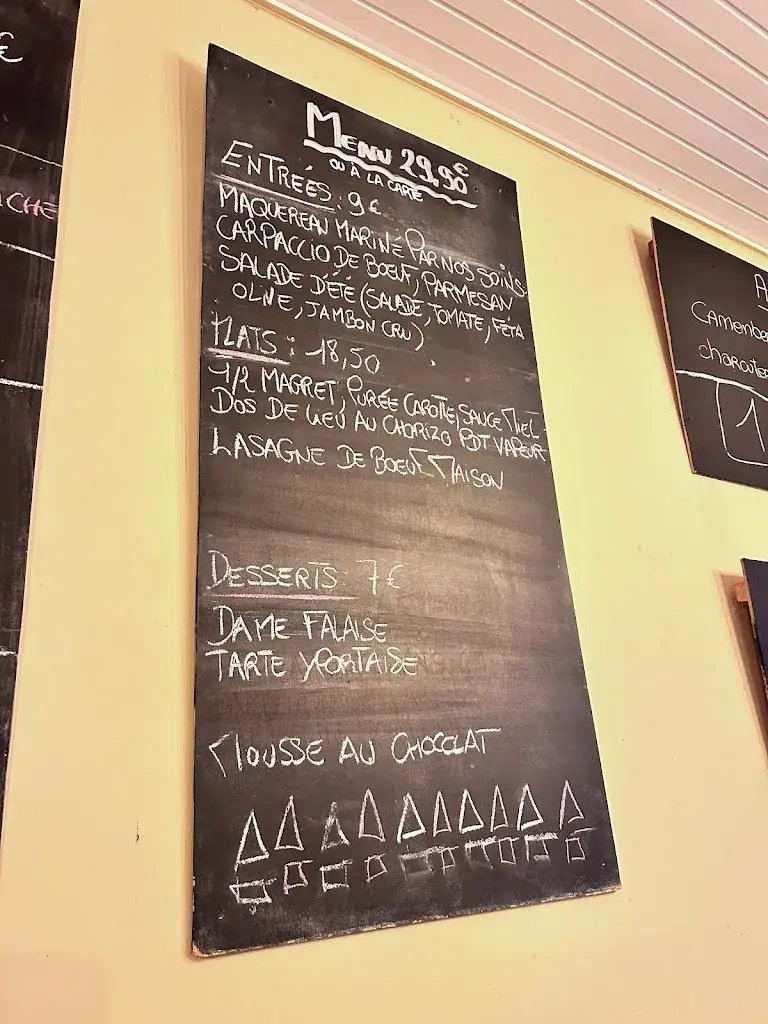 €
CHE
MENU 29,90€
OU À LA CARTE
ENTRÉES : 9€
MAQUEREAU MARINÉ PAR NOS SOINS
CARPACCIO DE BOEUF, PARMESAN
SALADE D'ÉTÉ (SALADE, TOMATE, FÉTA
OLIVE, JAMBON CRU)
PLATS : 18,50
1/2 MAGRET, PURÉE CAROTTE, SAUCE MIEL
DOS DE LIEU AU CHORIZO PDT VAPEUR
LASAGNE DE BOEUF MAISON
DESSERTS : 7€
DAME FALAISE
TARTE YPORTAISE
MOUSSE AU CHOCOLAT
A
Camembe
charcute
1